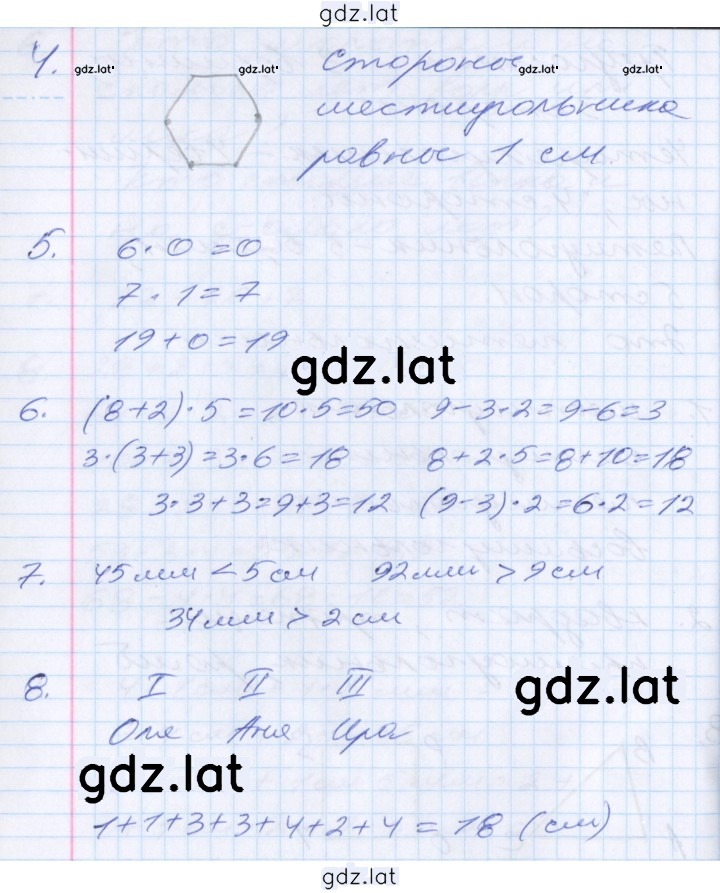 gdz.lat
4. gdz.lat gdz.lat Стороны gdz.lat gdz.lat
шестиугольника
равны 1 см.
5. 6·0=0
7·1=7
19+0=19
gdz.lat
6. (8+2)·5=10·5=50 9-3·2=9-6=3
3·(3+3)=3·6=18 8+2·5=8+10=18
3·3+3=9+3=12 (9-3)·2=6·2=12
7. 45мм<5см 92мм>9см
34мм>2см
8. I II III
gdz.lat
Оля Аня Ира
gdz.lat
1+1+3+3+4+2+4=18 (см)
gdz.lat